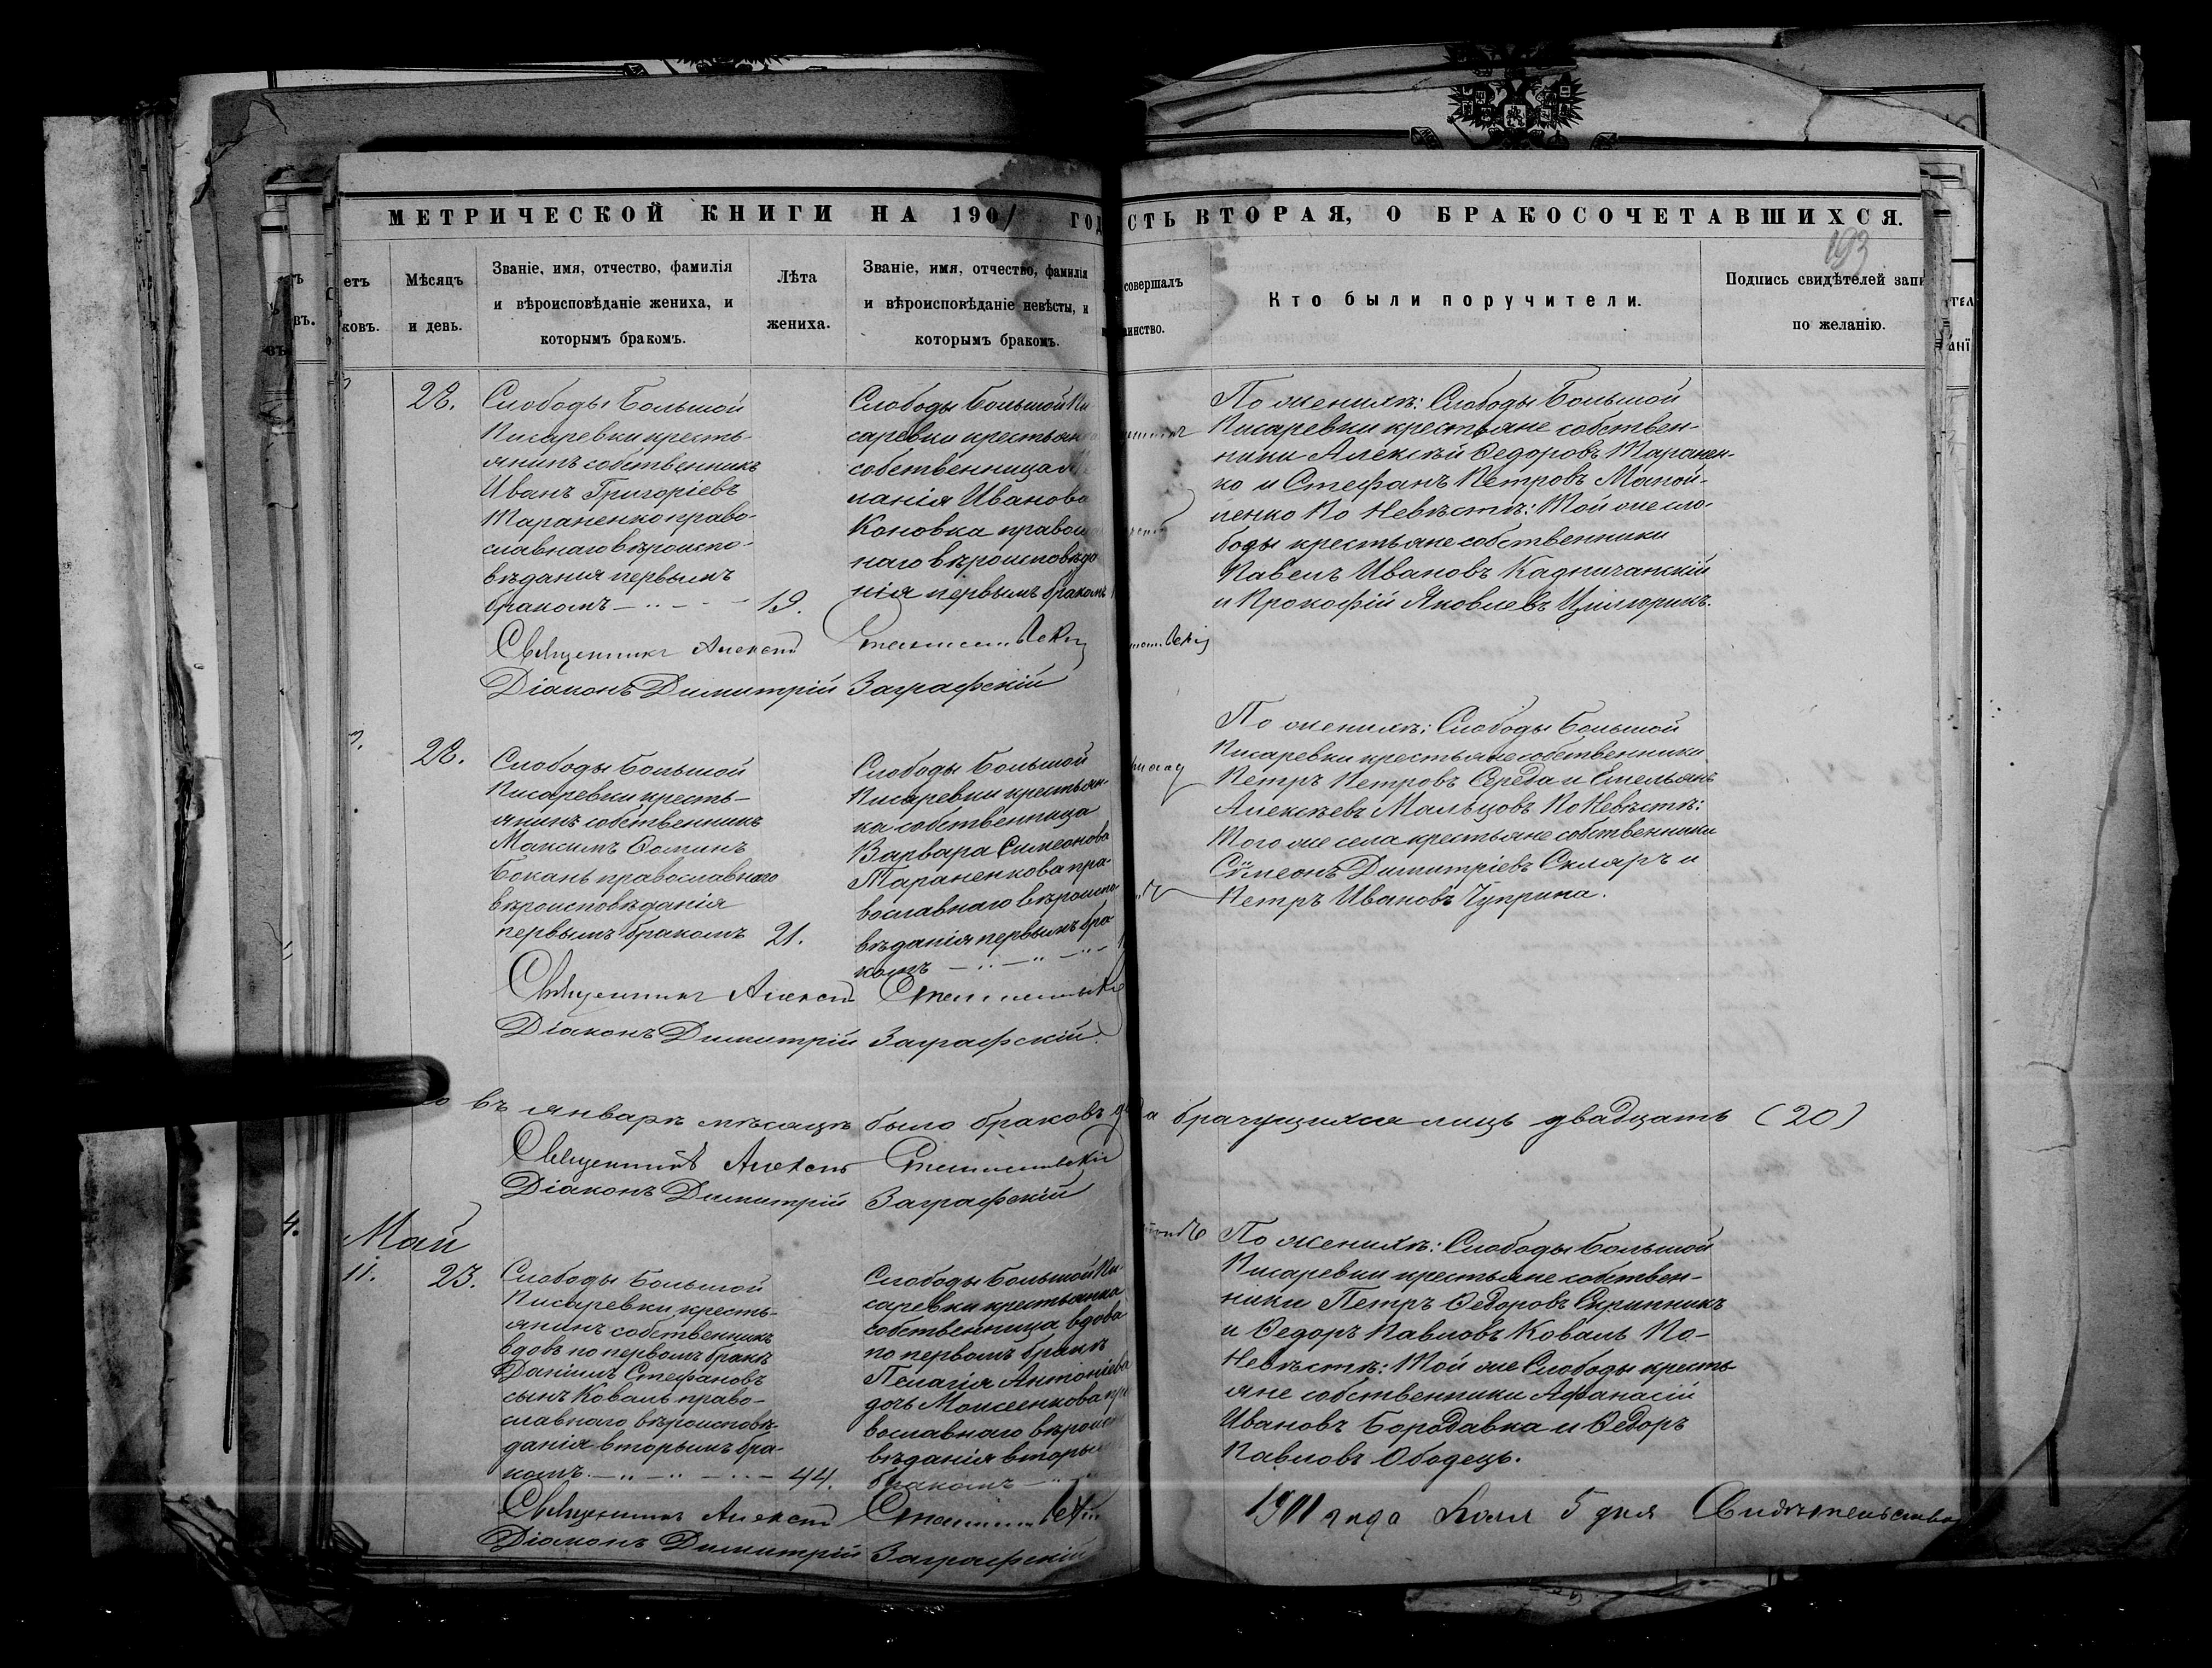 МЕТРИЧЕСКОЙ КНИГИ НА 1901 ГОД
СТЬ ВТОРАЯ, О БРАКОСОЧЕТАВШИХСЯ.
193
етъ
ковъ.
Мѣсяцъ
и день.
Званіе, имя, отчество, фамилія
и вѣроисповѣданіе жениха, и
которымъ бракомъ.
Лѣта
жениха.
Званіе, имя, отчество, фамилія
и вѣроисповѣданіе невѣсты, и
которымъ бракомъ.
совершалъ
инство.
Кто были поручители.
Подпись свидѣтелей запи
по желанію.
28.
Слободы Большой
Писаревки кресть-
янинъ собственникъ
Иванъ Григоріевъ
Тараненко право-
славнаго вѣроиспо-
вѣданія первымъ
бракомъ
19.
Слободы Большой Пи
саревки крестьян
собственница
ланія Иванова
Коновка правосл
наго вѣроисповѣда
нія первымъ бракомъ
По женихѣ: Слободы Большой
Писаревки крестьяне собствен-
ники Алексѣй Ѳедоровъ Таранен-
ко и Стефанъ Петровъ Маной-
ленко По Невѣстѣ: Той же сло-
боды крестьяне собственники
Павелъ Ивановъ
и Прокофій Яковлевъ
Священникъ Алексѣй
Діаконъ Димитрій Заграфскій
28.
Слободы Большой
Писаревки кресть-
янинъ собственникъ
Максимъ Ѳоминъ
Боканъ православнаго
вѣроисповѣданія
первымъ бракомъ
21.
Слободы Большой
Писаревки крестьян-
ка собственница
Варвара Симеонова
Тараненкова пра-
вославнаго вѣроиспо-
вѣданія первымъ бра-
комъ
По женихѣ: Слободы Большой
Писаревки крестьяне собственники
Петръ Петровъ Середа и Емельянъ
Алексѣевъ Мальцовъ По Невѣстѣ:
Того же села крестьяне собственники
Сѵмеонъ Димитріевъ Скляръ и
Петръ Ивановъ Чуприна.
Священникъ Алексѣй
Діаконъ Димитрій Заграфскій.
въ январѣ мѣсяцѣ было браковъ
брачущихся лицъ двадцать (20)
Священникъ Алексѣй
Діаконъ Димитрій Заграфскій
Май
11.
23.
Слободы Большой
Писаревки кресть-
янинъ собственникъ
вдовъ по первомъ бракѣ
Даніилъ Стефановъ
сынъ Коваль право-
славнаго вѣроисповѣ-
данія вторымъ бра-
комъ
44.
Слободы Большой Пи-
саревки крестьянка
собственница вдова
по первомъ бракѣ
Пелагія Антоніева
дочь Моисеенкова пра
вославнаго вѣроиспо
вѣданія вторым
бракомъ
По женихѣ: Слободы Большой
Писаревки крестьяне собствен-
ники Петръ Ѳедоровъ Скрипникъ
и Ѳедоръ Павловъ Коваль По-
Невѣстѣ: Той же Слободы кресть-
яне собственники Аѳанасій
Ивановъ Бородавка и Ѳедоръ
Павловъ Ободецъ.
Священникъ Алексѣй
Діаконъ Димитрій Заграфскій
1901 года 5 дня Свидѣтельство